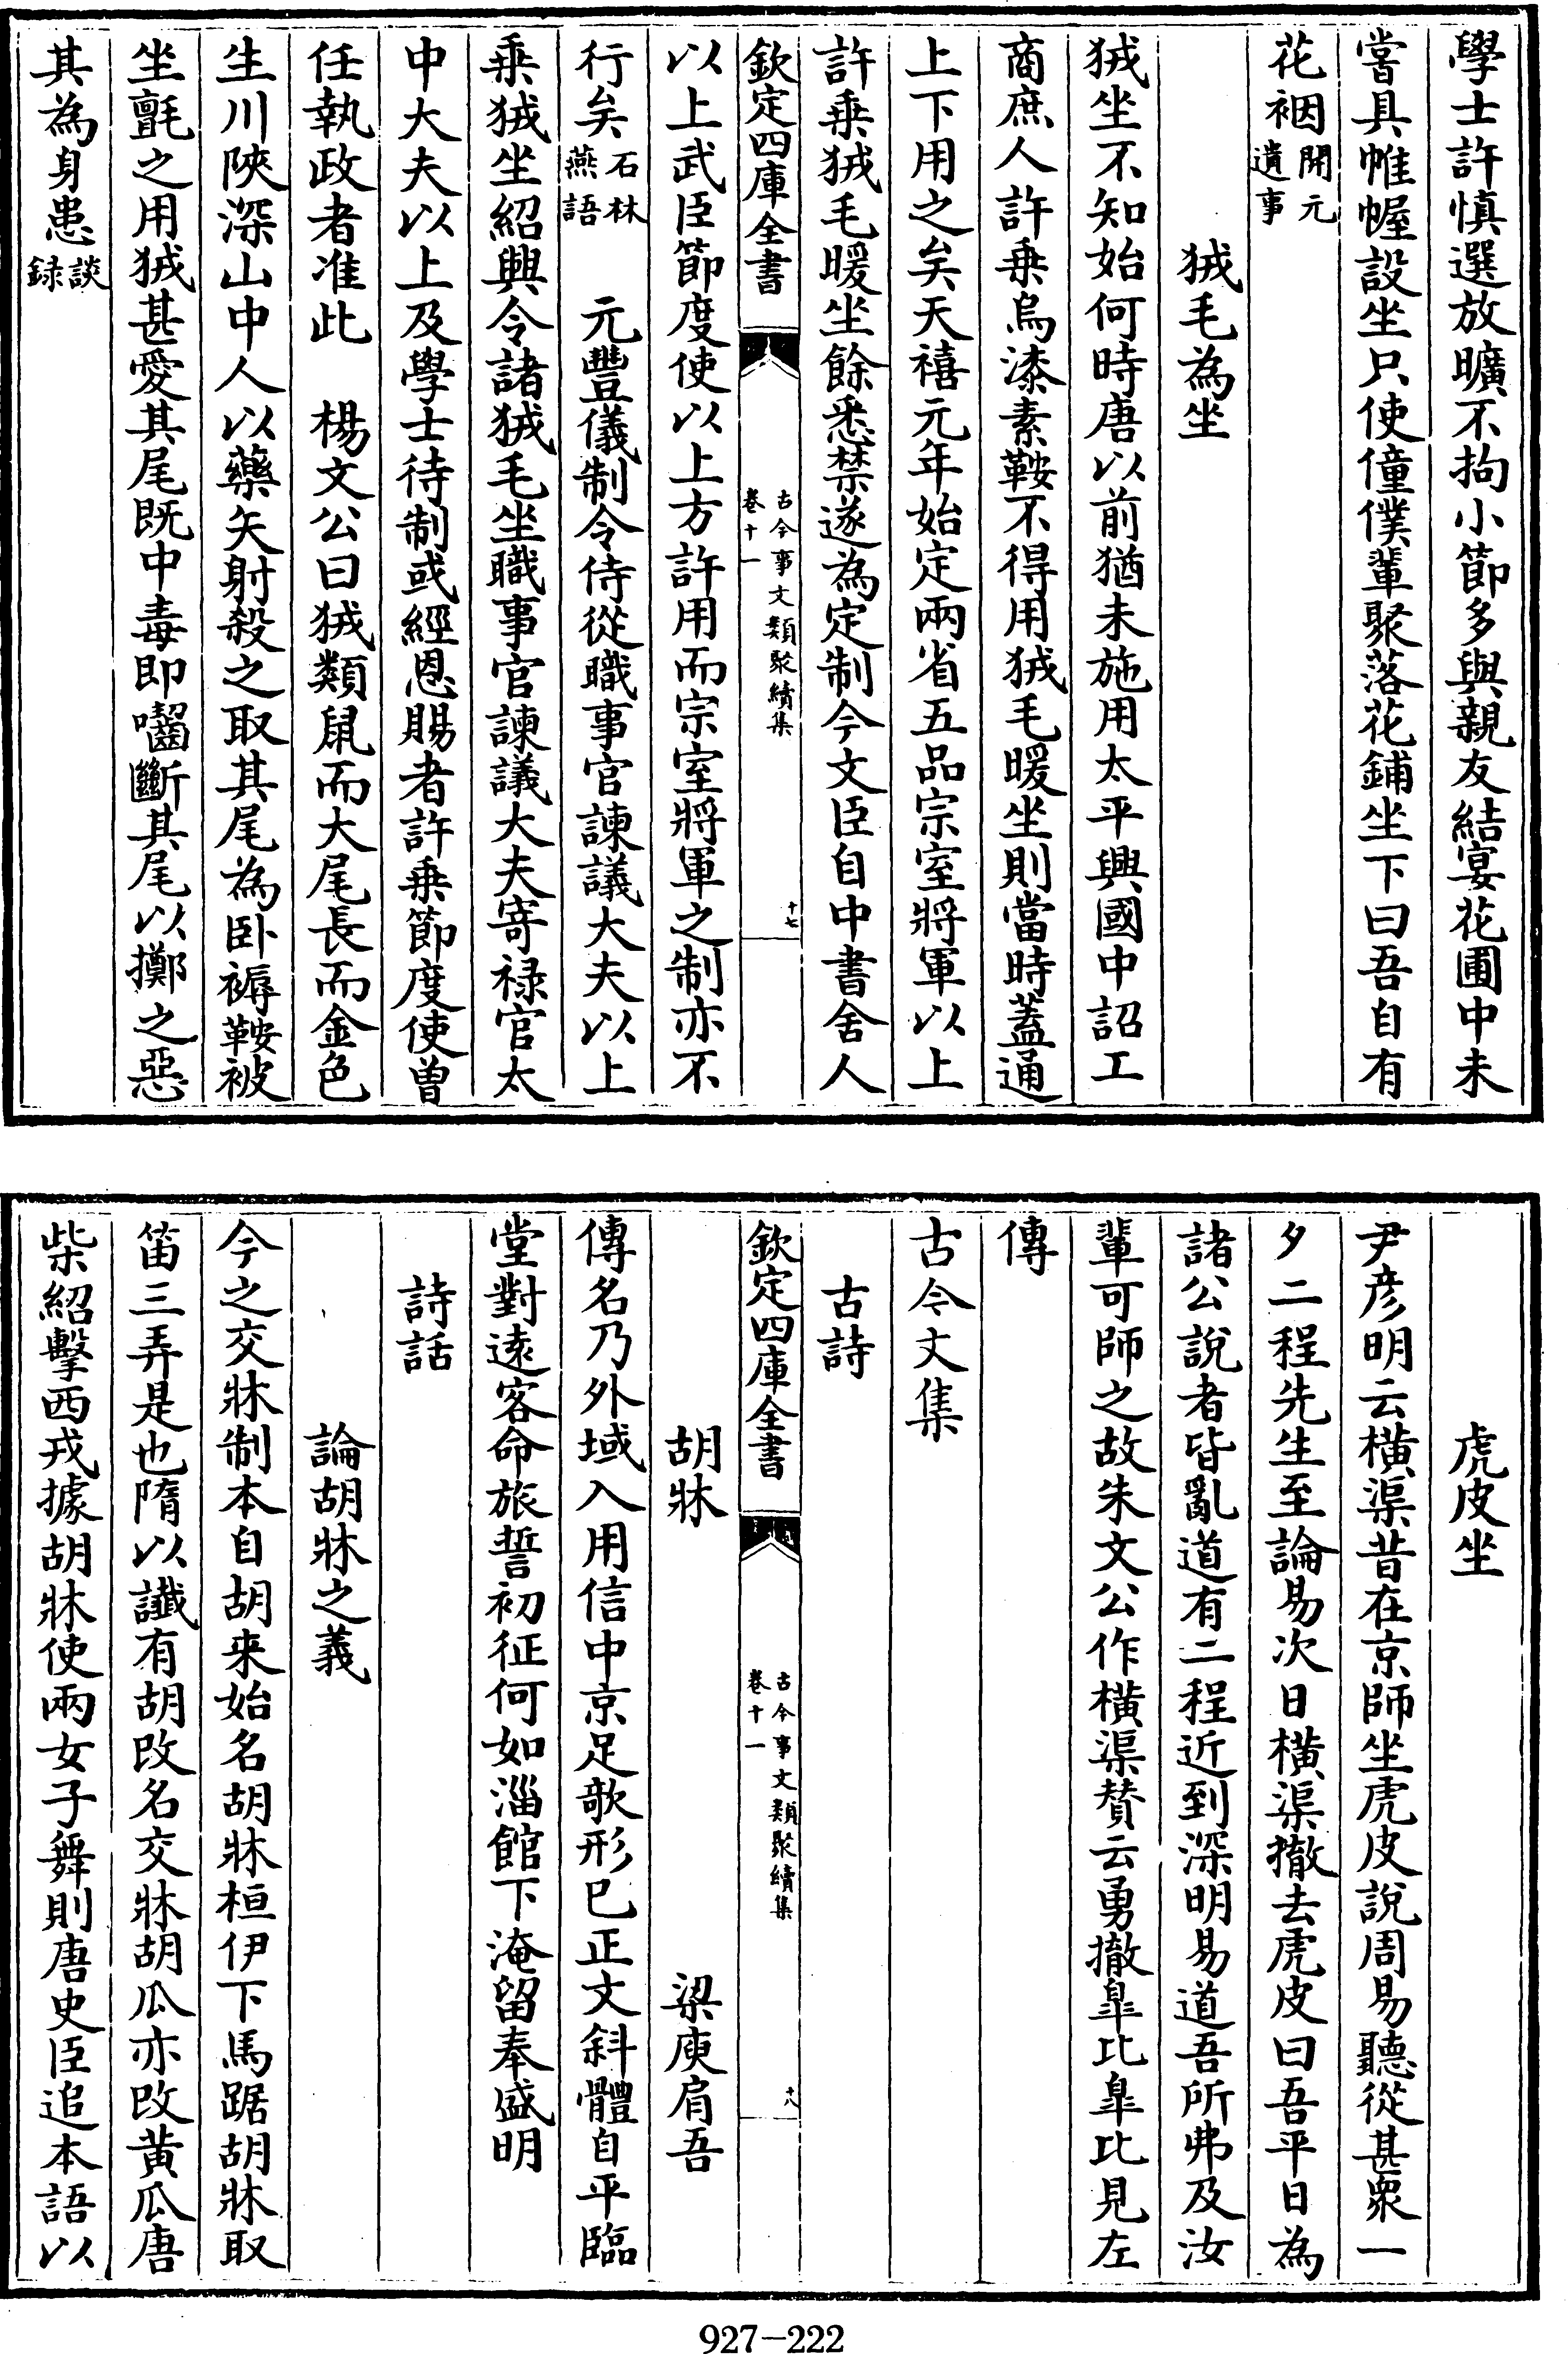 學士許慎選放曠不拘小節多與親友結宴花圃中未
嘗具帷幄設坐只使僮僕輩聚落花鋪坐下曰吾自有
花裀開元遺事
狨毛為坐
狨坐不知始何時唐以前猶未施用太平興國中詔工
商庶人許乗烏漆素鞍不得用狨毛暖坐則當時蓋通
上下用之矣天禧元年始定兩省五品宗室將軍以上
許乗狨毛暖坐餘悉禁遂為定制今文臣自中書舍人
欽定四庫全書
古今事文類聚續集
卷十一
十七
以上武臣節度使以上方許用而宗室將軍之制亦不
行矣石林燕語　元豐儀制令侍從職事官諫議大夫以上
乗狨坐紹興令諸狨毛坐職事官諫議大夫寄禄官太
中大夫以上及學士待制或經恩賜者許乗節度使曽
任執政者准此　楊文公曰狨類鼠而大尾長而金色
生川陝深山中人以藥矢射殺之取其尾為卧褥鞍被
坐氊之用狨甚愛其尾既中毒即嚙斷其尾以擲之惡
其為身患談録
虎皮坐
尹彦明云横渠昔在京師坐虎皮說周易聽從甚衆一
夕二程先生至論易次日横渠撤去虎皮曰吾平日為
諸公說者皆亂道有二程近到深明易道吾所弗及汝
輩可師之故朱文公作横渠賛云勇撤臯比臯比見左
傳
古今文集
古詩
欽定四庫全書
古今事文類聚續集
卷十一
十八
胡牀　梁庾肩吾
傳名乃外域入用信中京足欹形已正文斜體自平臨
堂對逺客命旅誓初征何如淄館下淹留奉盛明
詩話
論胡牀之義
今之交牀制本自胡来始名胡牀桓伊下馬踞胡牀取
笛三弄是也隋以讖有胡改名交牀胡瓜亦改黄瓜唐
柴紹擊西戎據胡牀使兩女子舞則唐史臣追本語以
927-222